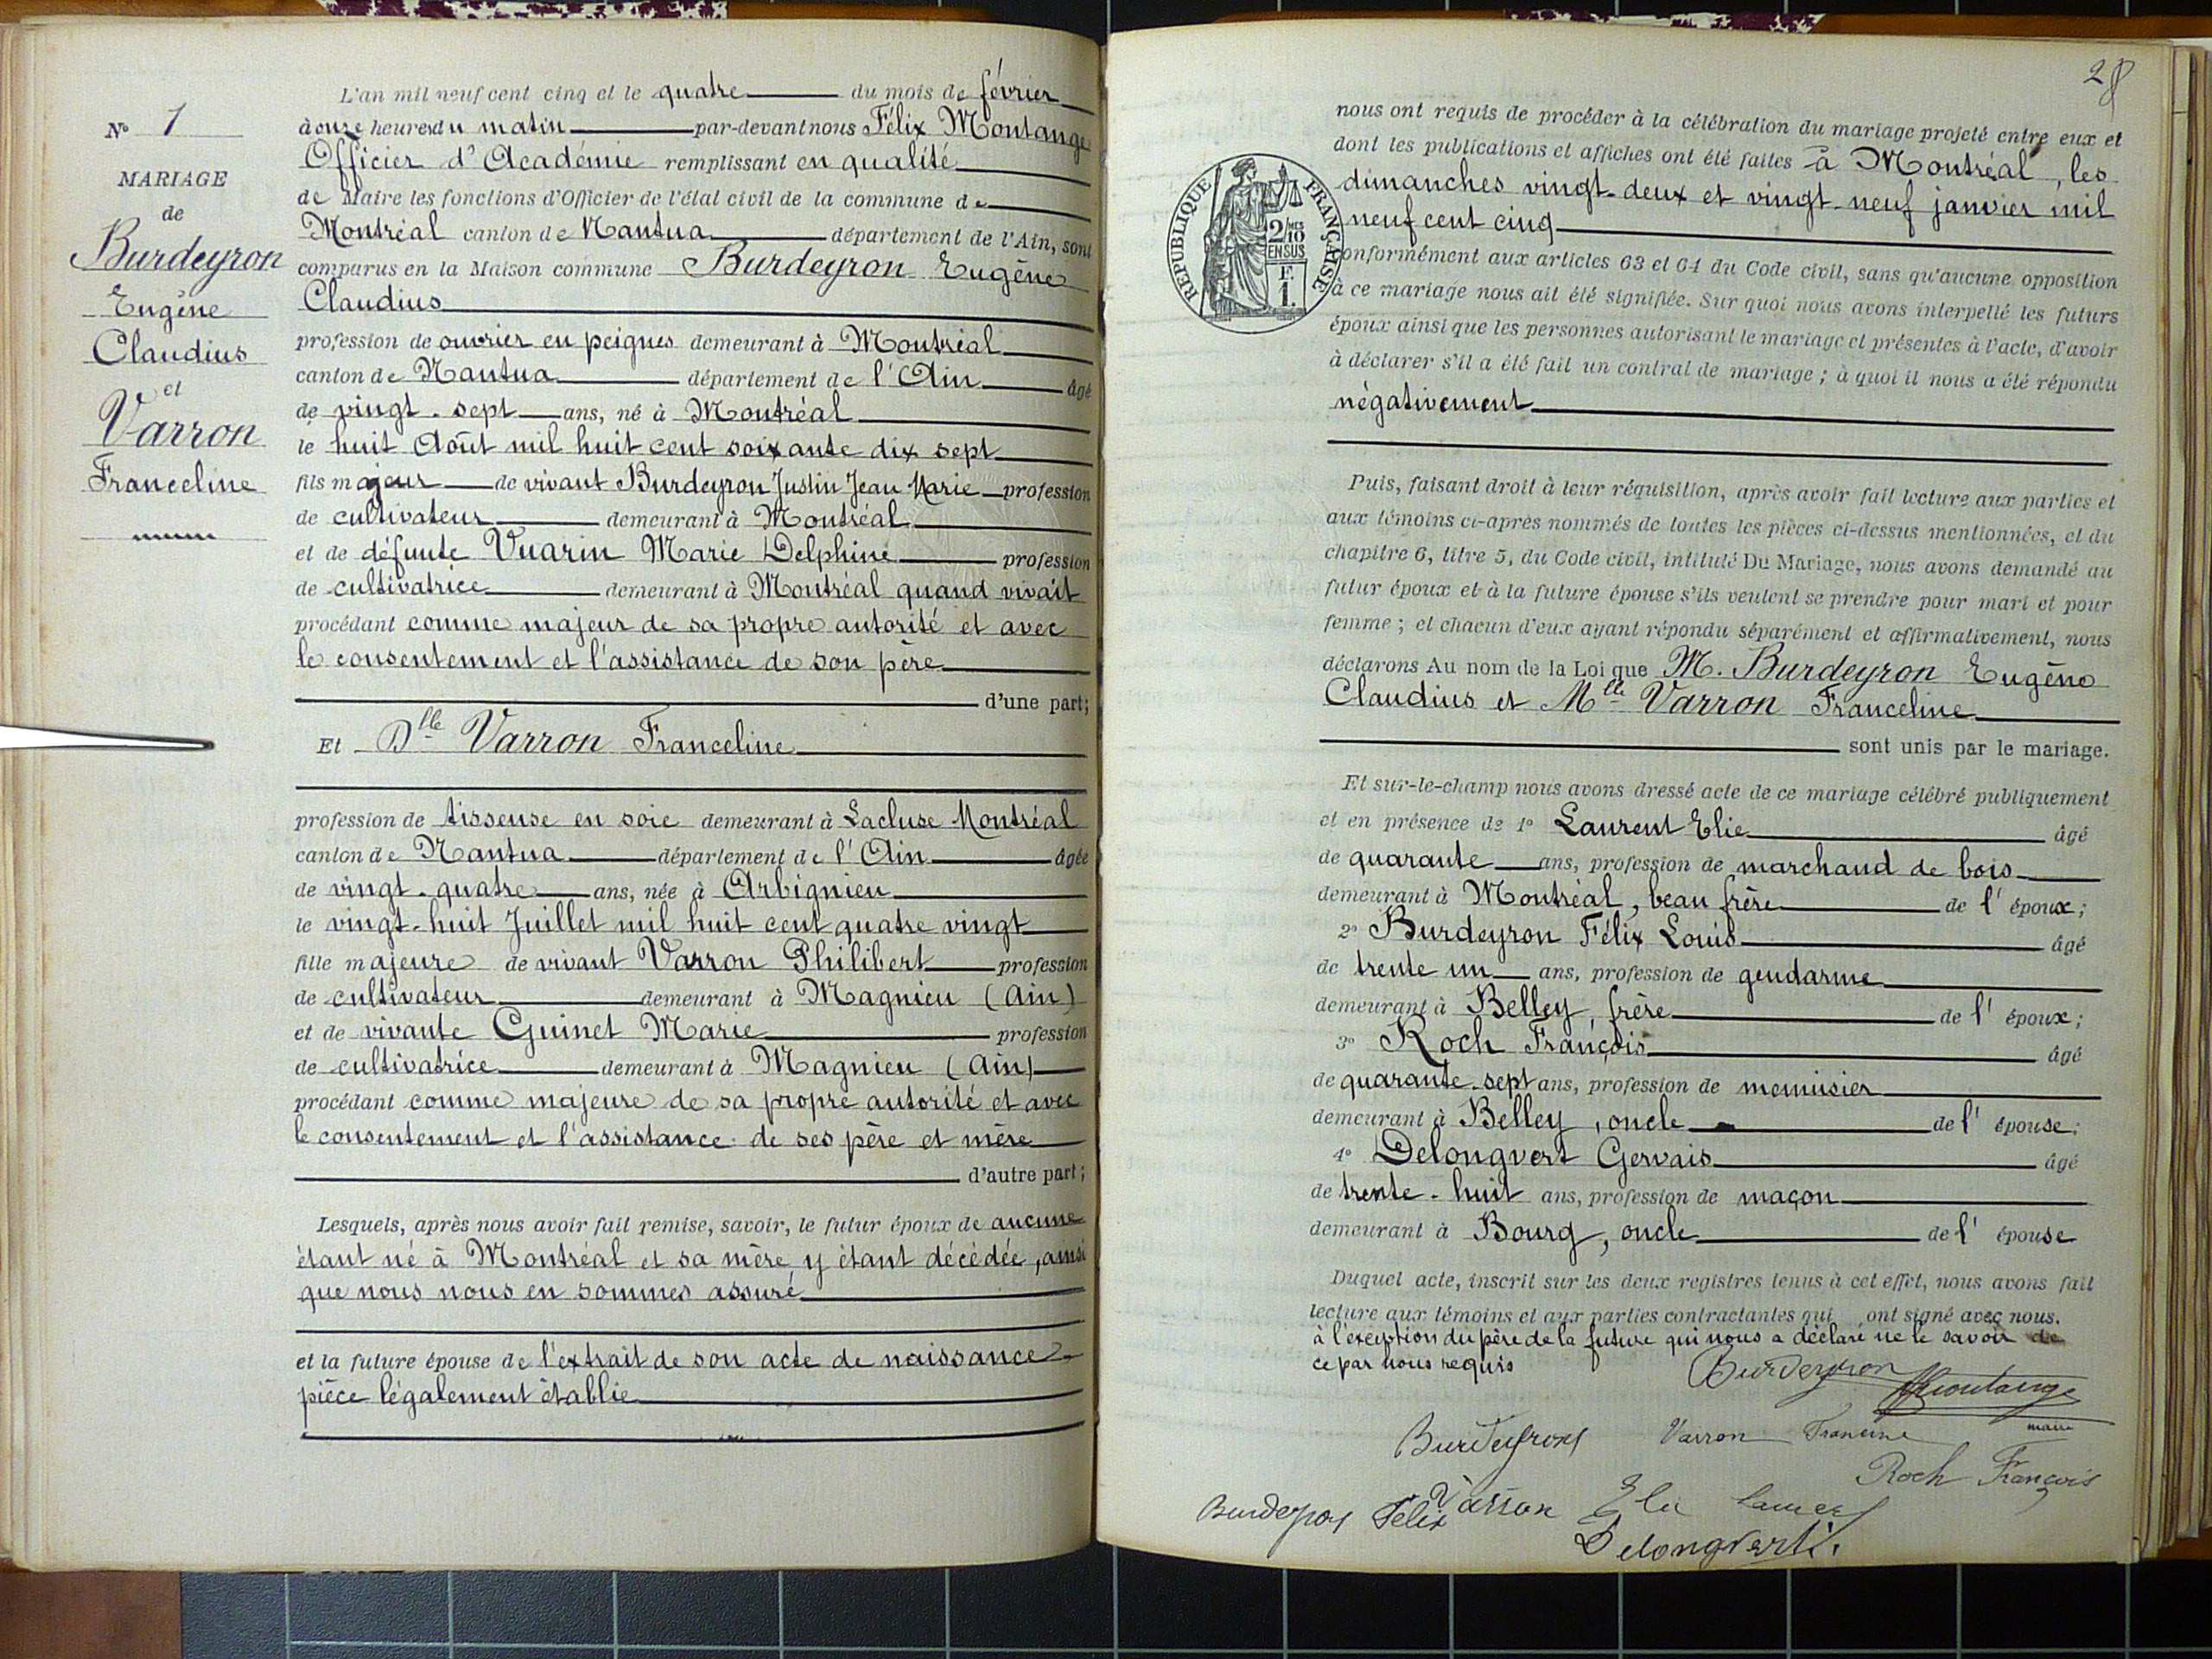 L'an mil neuf cent cinq et le quatre du mois de février
à onze heures du matin par-devant nous Félix Montange
Officier d'Académie remplissant en qualité
de Maire les fonctions d'Officier de l'état civil de la commune de
Montréal canton de Nantua département de l'Ain, sont
comparus en la Maison commune Burdeyron Eugène
Claudius
profession de ouvrier en peignes demeurant à Montréal
canton de Nantua département de l'Ain âgé
de vingt-sept ans, né à Montréal
le huit Août mil huit cent soixante dix sept
fils majeur de vivant Burdeyron Justin Jean Marie profession
de cultivateur demeurant à Montréal
et de défunte Vuarin Marie Delphine profession
de cultivatrice demeurant à Montréal quand vivait
procédant comme majeur de sa propre autorité et avec
le consentement et l'assistance de son père
d'une part;
Et Dlle Varron Franceline
profession de tisseuse en soie demeurant à Lacluse Montréal
canton de Nantua département de l'Ain âgée
de vingt-quatre ans, née à Arbignieu
le vingt-huit Juillet mil huit cent quatre vingt
fille majeure de vivant Varron Philibert profession
de cultivateur demeurant à Magnieu (Ain)
et de vivante Guinet Marie profession
de cultivatrice demeurant à Magnieu (Ain)
procédant comme majeure de sa propre autorité et avec
le consentement et l'assistance de ses père et mère
d'autre part;
Lesquels, après nous avoir fait remise, savoir, le futur époux de aucune
étant né à Montréal et sa mère y étant décédée, ainsi
que nous nous en sommes assuré
et la future épouse de l'extrait de son acte de naissance
pièce légalement établie
N° 1
MARIAGE
de
Burdeyron
Eugène
Claudius
et
Varron
Franceline
28
nous ont requis de procéder à la célébration du mariage projeté entre eux et
dont les publications et affiches ont été faites à Montréal, les
dimanches vingt-deux et vingt-neuf janvier mil
neuf cent cinq
conformément aux articles 63 et 64 du Code civil, sans qu'aucune opposition
à ce mariage nous ait été signifiée. Sur quoi nous avons interpellé les futurs
époux ainsi que les personnes autorisant le mariage et présentes à l'acte, d'avoir
à déclarer s'il a été fait un contrat de mariage; à quoi il nous a été répondu
négativement
RÉPUBLIQUE FRANÇAISE
2/10MES
EN SUS
F
1.
Puis, faisant droit à leur réquisition, après avoir fait lecture aux parties et
aux témoins ci-après nommés de toutes les pièces ci-dessus mentionnées, et du
chapitre 6, titre 5, du Code civil, intitulé Du Mariage, nous avons demandé au
futur époux et à la future épouse s'ils veulent se prendre pour mari et pour
femme; et chacun d'eux ayant répondu séparément et affirmativement, nous
déclarons Au nom de la Loi que M. Burdeyron Eugène
Claudius et Mlle Varron Franceline
sont unis par le mariage.
Et sur-le-champ nous avons dressé acte de ce mariage célébré publiquement
et en présence de 1° Laurent Elie âgé
de quarante ans, profession de marchand de bois
demeurant à Montréal, beau frère de l'époux;
2° Burdeyron Félix Louis âgé
de trente un ans, profession de gendarme
demeurant à Belley, frère de l'époux;
3° Roch François âgé
de quarante-sept ans, profession de menuisier
demeurant à Belley, oncle de l'épouse;
4° Delongvert Gervais âgé
de trente-huit ans, profession de maçon
demeurant à Bourg, oncle de l'épouse
Duquel acte, inscrit sur les deux registres tenus à cet effet, nous avons fait
lecture aux témoins et aux parties contractantes qui ont signé avec nous.
à l'exception du père de la future qui nous a déclaré ne le savoir de
ce par nous requis
Burdeyron
Montange
maire
Burdeyron Varron Francine
Roch François
Burdeyron Félix Varron Elie Laurent
Delongvert.